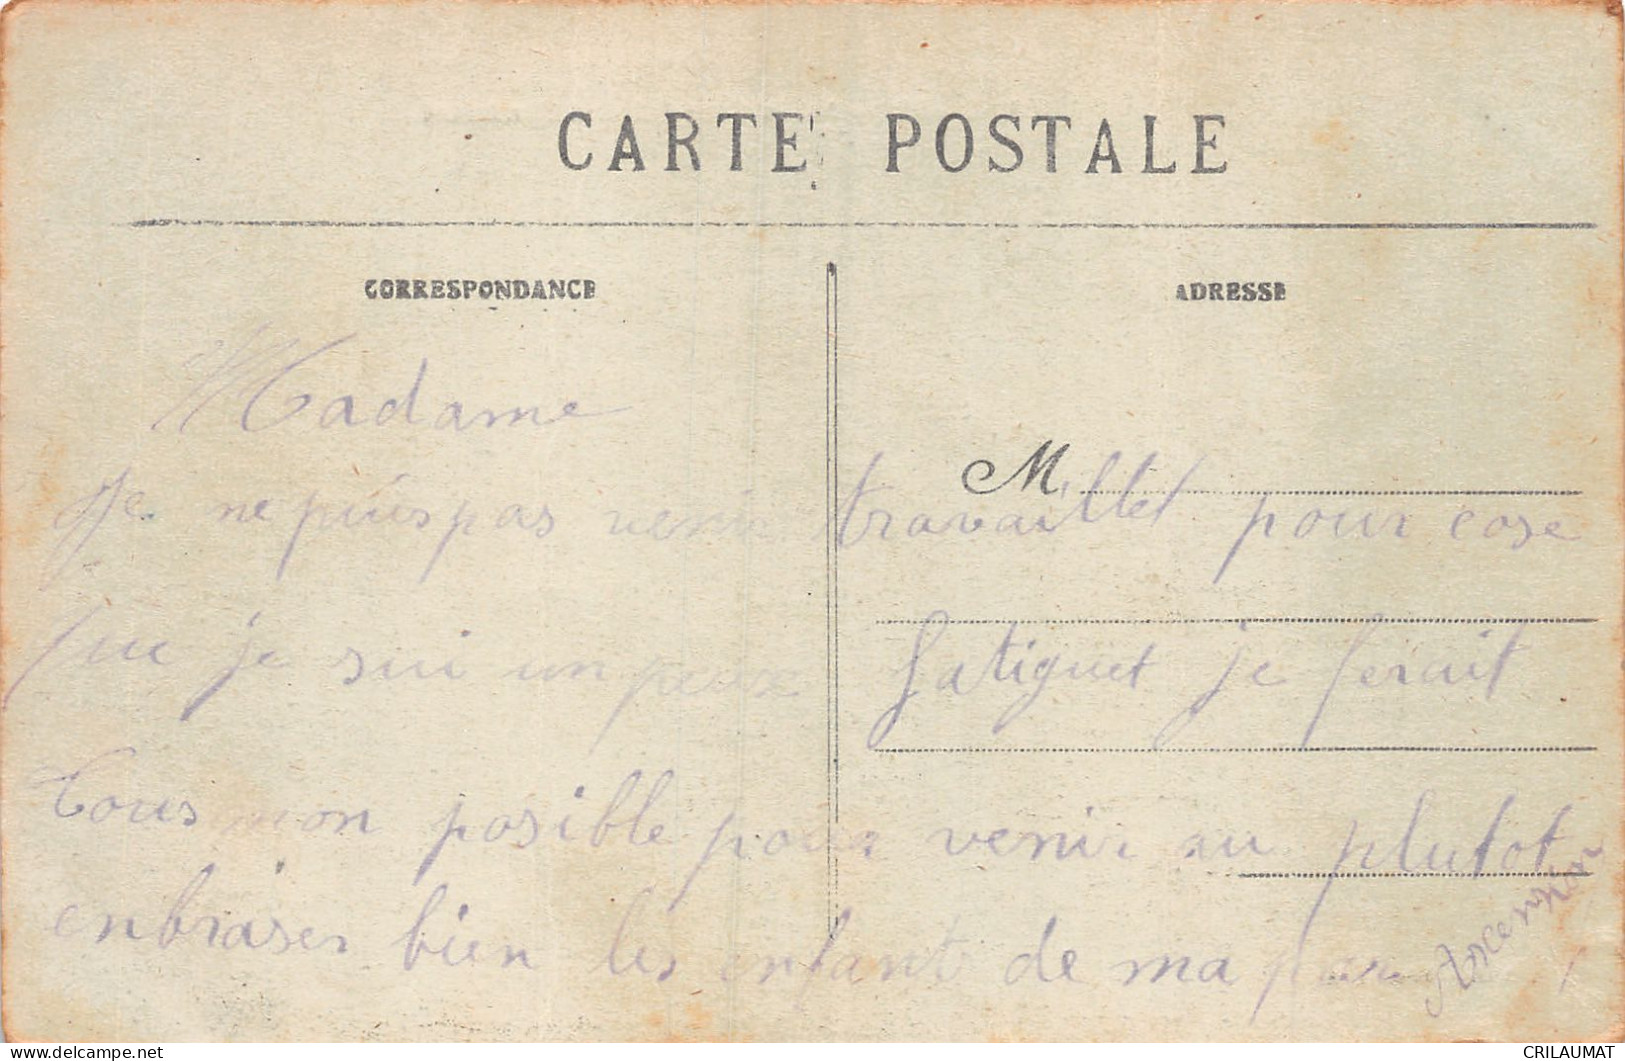 CARTE POSTALE
CORRESPONDANCE
ADRESSE
Madame
M
Je ne puis pas venir travaillet pour cose
que je sui un peux fatiguet je ferait
tous mon posible pour venir au plutot
enbraser bien les enfant de ma
Ascension
delcampe.net
CRILAUMAT